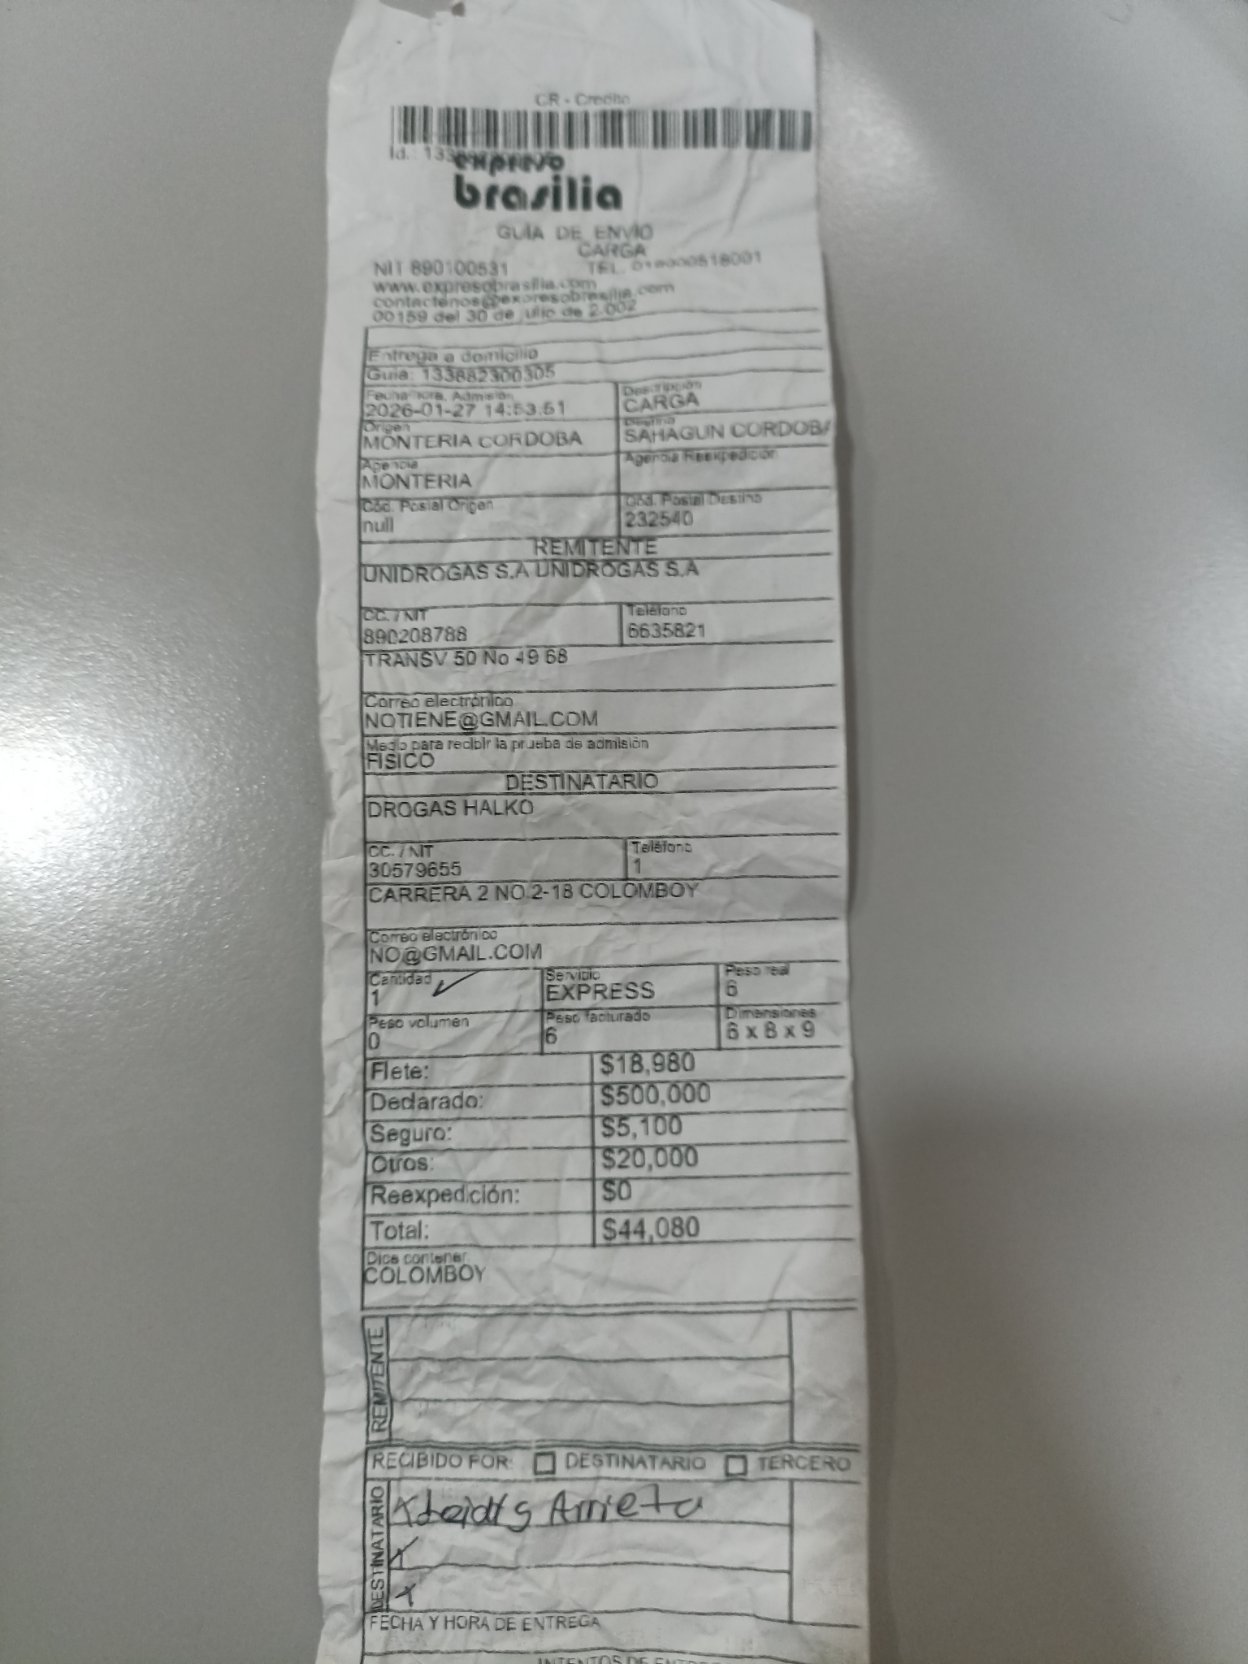 CR - Credito
Id.: 133
expreso
brasilia
GUIA DE ENVIO
CARGA
NIT 890100531 TEL. 018000518001
www.expresobrasilia.com
contactenos@expresobrasilia.com
00159 del 30 de julio de 2.002
Entrega a domicilio
Guia: 133682300305
Fecha Hora, Admisión Descripción
2026-01-27 14:53:51 CARGA
Origen Destino
MONTERIA CORDOBA SAHAGUN CORDOBA
Agencia Agencia Reexpedición
MONTERIA
Cód. Postal Origen Cód. Postal Destino
null 232540
REMITENTE
UNIDROGAS S.A UNIDROGAS S.A
CC. / NIT Teléfono
890208788 6635821
TRANSV 50 No 49 68
Correo electrónico
NOTIENE@GMAIL.COM
Medio para recibir la prueba de admisión
FISICO
DESTINATARIO
DROGAS HALKO
CC. / NIT Teléfono
30579655 1
CARRERA 2 NO 2-18 COLOMBOY
Correo electrónico
NO@GMAIL.COM
Cantidad Servicio Peso real
1 EXPRESS 6
Peso volumen Peso facturado Dimensiones
0 6 6 x 8 x 9
Flete: $18,980
Declarado: $500,000
Seguro: $5,100
Otros: $20,000
Reexpedición: $0
Total: $44,080
Dice contener
COLOMBOY
REMITENTE
RECIBIDO POR: DESTINATARIO TERCERO
DESTINATARIO
Arrieta
FECHA Y HORA DE ENTREGA
INTENTOS DE